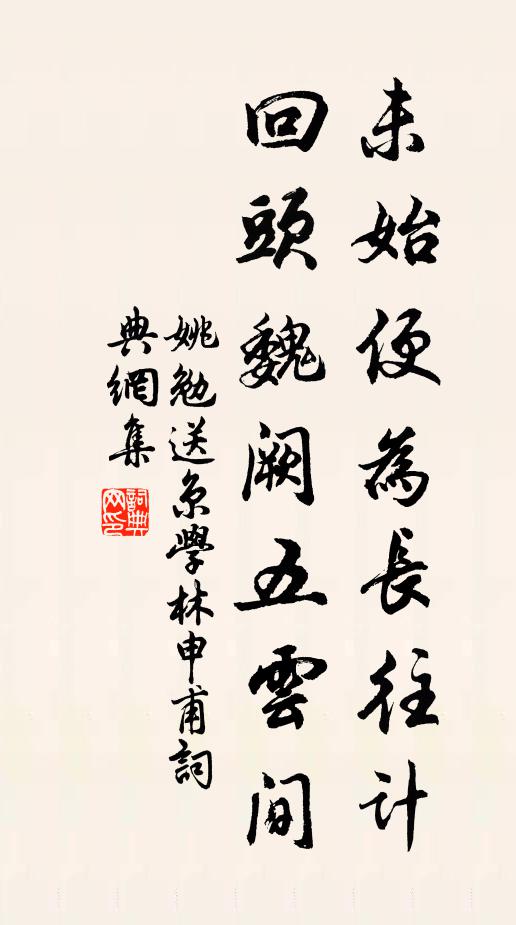 未始便為長往計
回頭魏闕五雲間
姚勉送京學林申甫詞
典網集
詞典网印